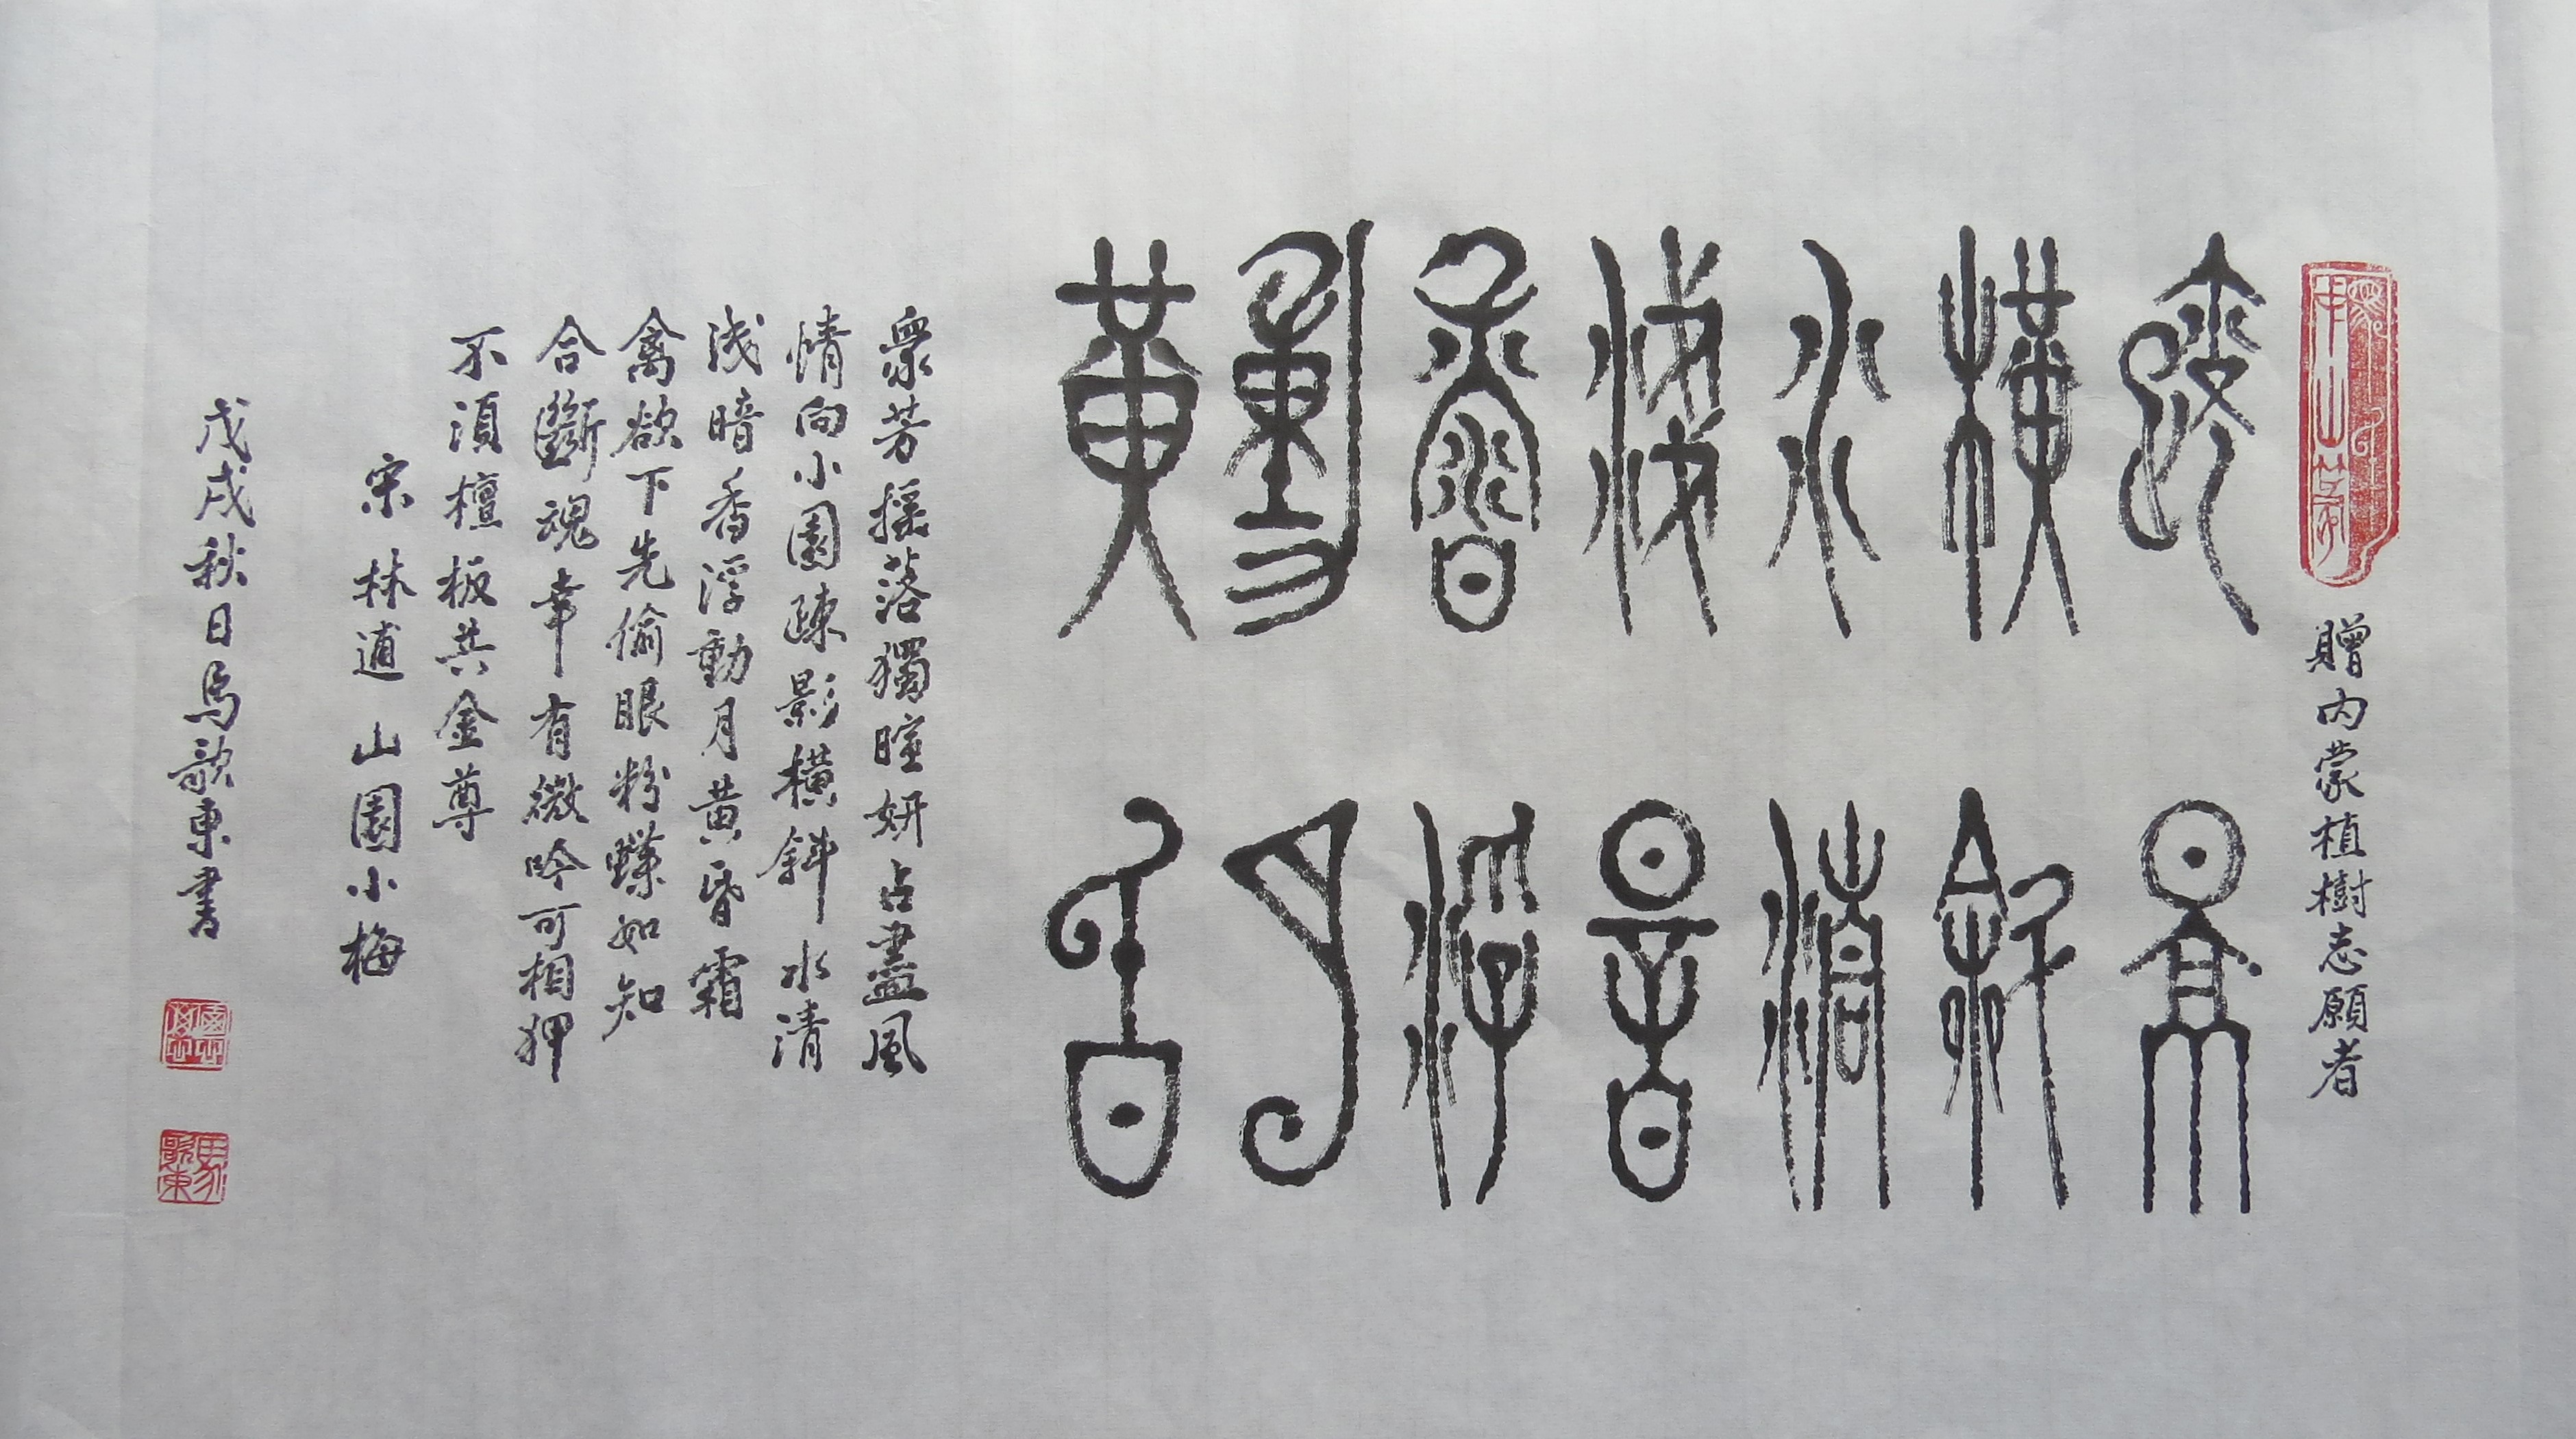 贈内蒙植樹志願者
疎影
橫斜
水清
淺暗
香浮
動月
黃昏
衆芳摇落獨暄妍占盡風
情向小園疎影橫斜水清
浅暗香浮動月黄昏霜
禽欲下先偷眼粉蝶如知
合斷魂幸有微吟可相狎
不須檀板共金尊
宋 林逋 山園小梅
戊戌秋日馬歌東書
馬歌東